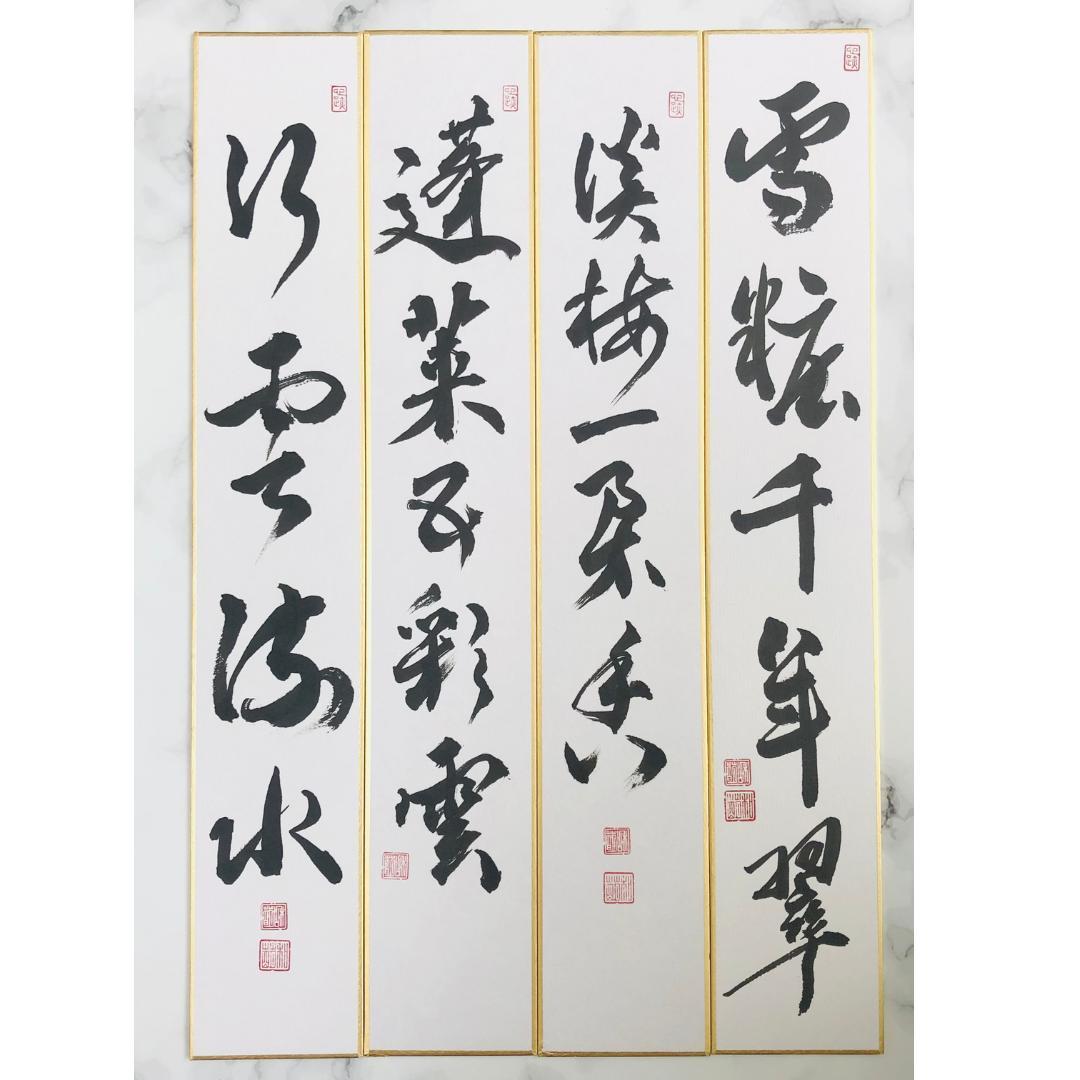 雪粧千年翠
淡梅一朶香
蓬莱五彩雲
行雲流水